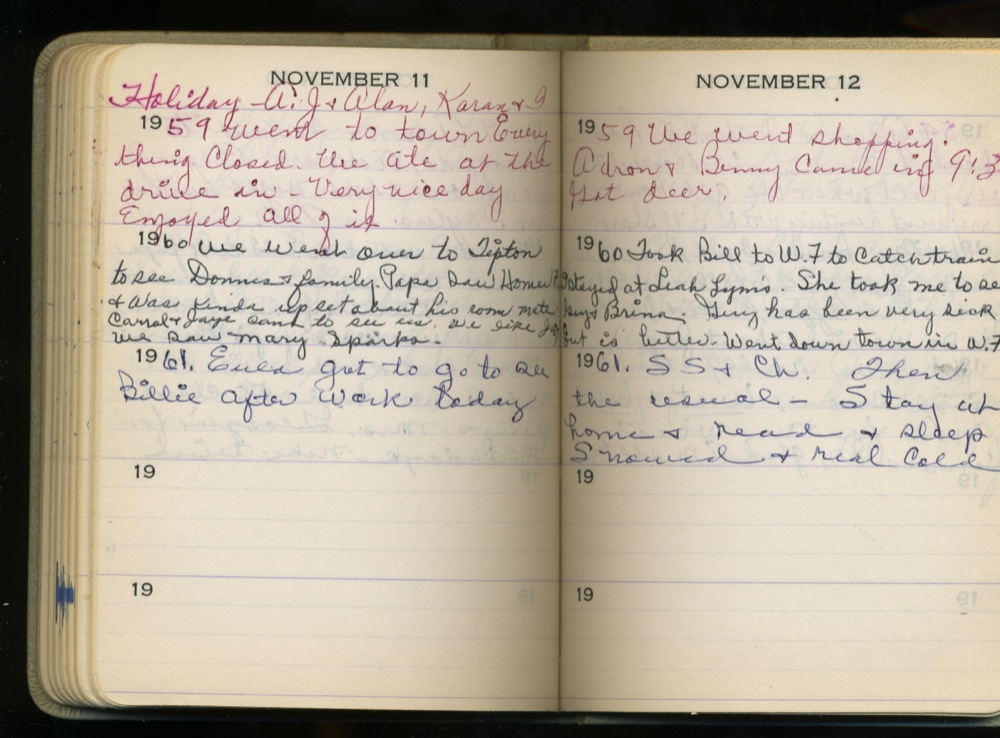 NOVEMBER 11
Holiday - A. J & Alan, Karan & I
1959 went to town Every
thing Closed. We ate at the
drive in - Very nice day
Enjoyed all of it
1960 We went over to Tipton
to see Donnis & family. Papa saw Homer
& was kinda upset about his room mate
Carrol & Jaye came to see us. We like
We saw Mary Sparks.
1961. Eula got to go to see
Billie after work today
19
19
NOVEMBER 12
1959 We went shopping.
Adron & Benny Came in 9:3
Got deer.
1960 Took Bill to W.F to Catch train
stayed at Leah Lynn's. She took me to se
Guy & Brina. Guy has been very sick
but is better. Went down town in W.F
1961. S S & Ch. Then
the usual - Stay at
home & read & sleep
Snowed & real Cold
19
19